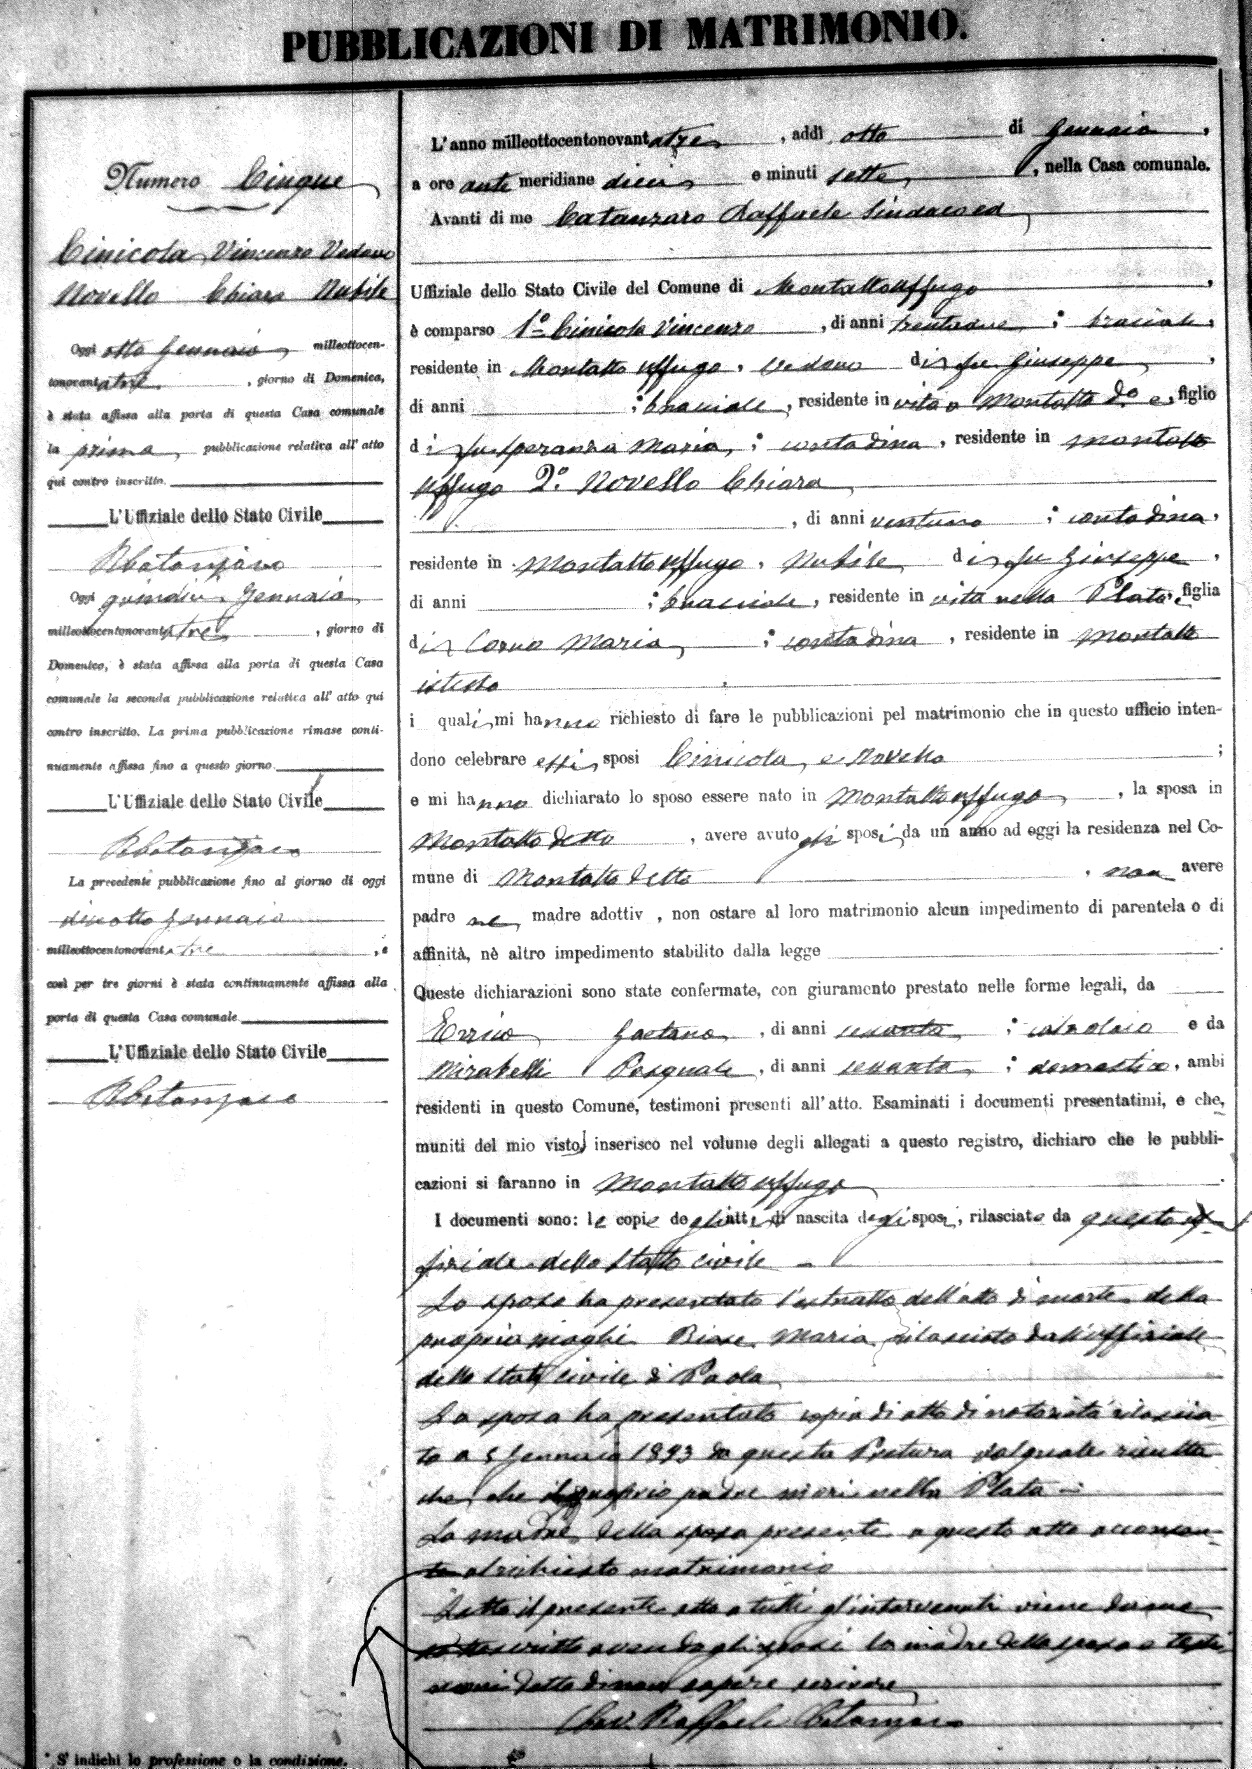 PUBBLICAZIONI DI MATRIMONIO.
Numero Cinque
Cinicola Vincenzo Vedovo
Novello Chiara Nubile
Oggi otto Gennaio milleottocen-
tonovantatre, giorno di Domenica,
è stata affissa alla porta di questa Casa comunale
la prima pubblicazione relativa all'atto
qui contro inscritto.
L'Uffiziale dello Stato Civile
RCatanzaro
Oggi quindici Gennaio
milleottocentonovantatre, giorno di
Domenica, è stata affissa alla porta di questa Casa
comunale la seconda pubblicazione relativa all'atto qui
contro inscritto. La prima pubblicazione rimase conti-
nuamente affissa fino a questo giorno.
L'Uffiziale dello Stato Civile
RCatanzaro
La precedente pubblicazione fino al giorno di oggi
diciotto Gennaio
milleottocentonovantatre, e
così per tre giorni è stata continuamente affissa alla
porta di questa Casa comunale.
L'Uffiziale dello Stato Civile
RCatanzaro
* S'indichi la professione o la condizione.
L'anno milleottocentonovantatre, addì otto di Gennaio,
a ore ante meridiane dieci e minuti sette, nella Casa comunale.
Avanti di me Catanzaro Raffaele Sindaco ed
Uffiziale dello Stato Civile del Comune di Montalto Uffugo,
è comparso 1° Cinicola Vincenzo, di anni trentadue; bracciale,
residente in Montalto Uffugo, vedovo di fu Giuseppe,
di anni ; bracciale, residente in vita a Montalto do e, figlio
di fu Speranza Maria, ; contadina, residente in Montalto
Uffugo 2° Novello Chiara
, di anni ventuno ; contadina,
residente in Montalto Uffugo, Nubile di fu Giuseppe,
di anni ; bracciale, residente in vita nella Plata, figlia
di Corno Maria ; contadina, residente in Montalto
istesso
i quali mi hanno richiesto di fare le pubblicazioni pel matrimonio che in questo ufficio inten-
dono celebrare essi sposi Cinicola e Novello ;
e mi hanno dichiarato lo sposo essere nato in Montalto Uffugo, la sposa in
Montalto detto, avere avuto gli sposi da un anno ad oggi la residenza nel Co-
mune di Montalto detto, non avere
padre ne madre adottiv , non ostare al loro matrimonio alcun impedimento di parentela o di
affinità, nè altro impedimento stabilito dalla legge
Queste dichiarazioni sono state confermate, con giuramento prestato nelle forme legali, da
Errico Gaetano, di anni sessanta ; calzolaio e da
Mirabelli Pasquale, di anni sessanta ; domestico, ambi
residenti in questo Comune, testimoni presenti all'atto. Esaminati i documenti presentatimi, e che,
muniti del mio visto, inserisco nel volume degli allegati a questo registro, dichiaro che le pubbli-
cazioni si faranno in Montalto Uffugo
I documenti sono: le copie degli atti di nascita degli sposi, rilasciate da questo uf-
fiziale dello Stato civile
Lo sposo ha presentato l'estratto dell'atto di morte della
propria moglie Biase Maria rilasciato dall'uffiziale
dello stato civile di Paola
La sposa ha presentato copia di atto di notorietà rilascia-
to a 5 Gennaio 1893 da questa Pretura dal quale risulta
che il proprio padre morì nella Plata
La madre della sposa presente a questo atto acconsen-
te al richiesto matrimonio
Letto il presente atto a tutti gl'intervenuti viene da me
sottoscritto avendo gli sposi la madre della sposa e testi-
moni detto di non sapere scrivere
Cav. Raffaele Catanzaro